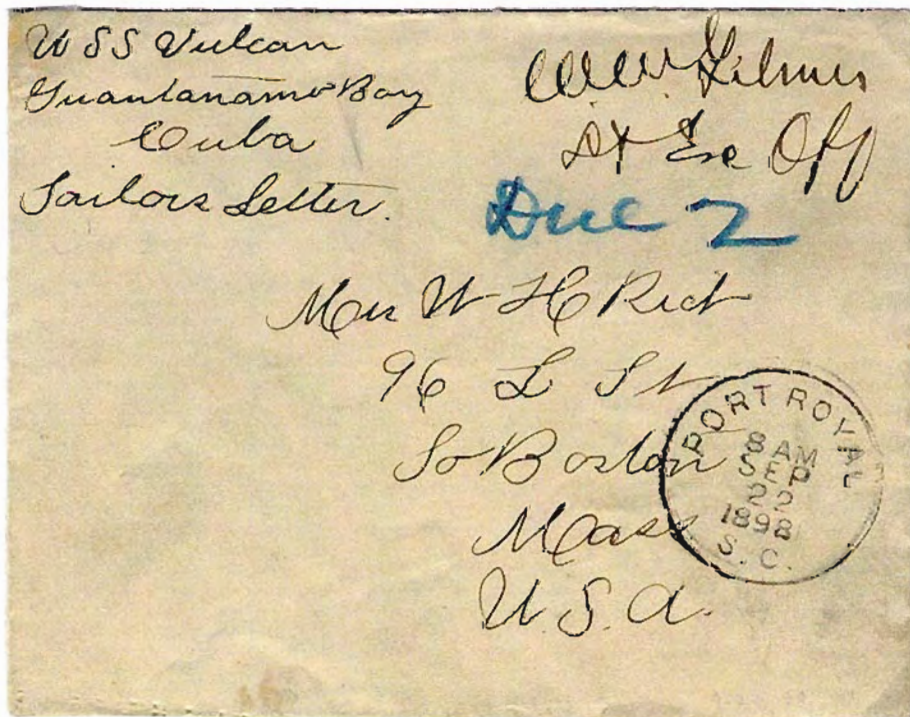 USS Vulcan
Guantanamo Bay
Cuba
Sailors Letter.
W.W. Gilmer
Ex Off
Due 2
Mrs W H Rich
96 L St
So Boston
Mass
U.S.A.
PORT ROYAL
8 AM
SEP
22
1898
S.C.